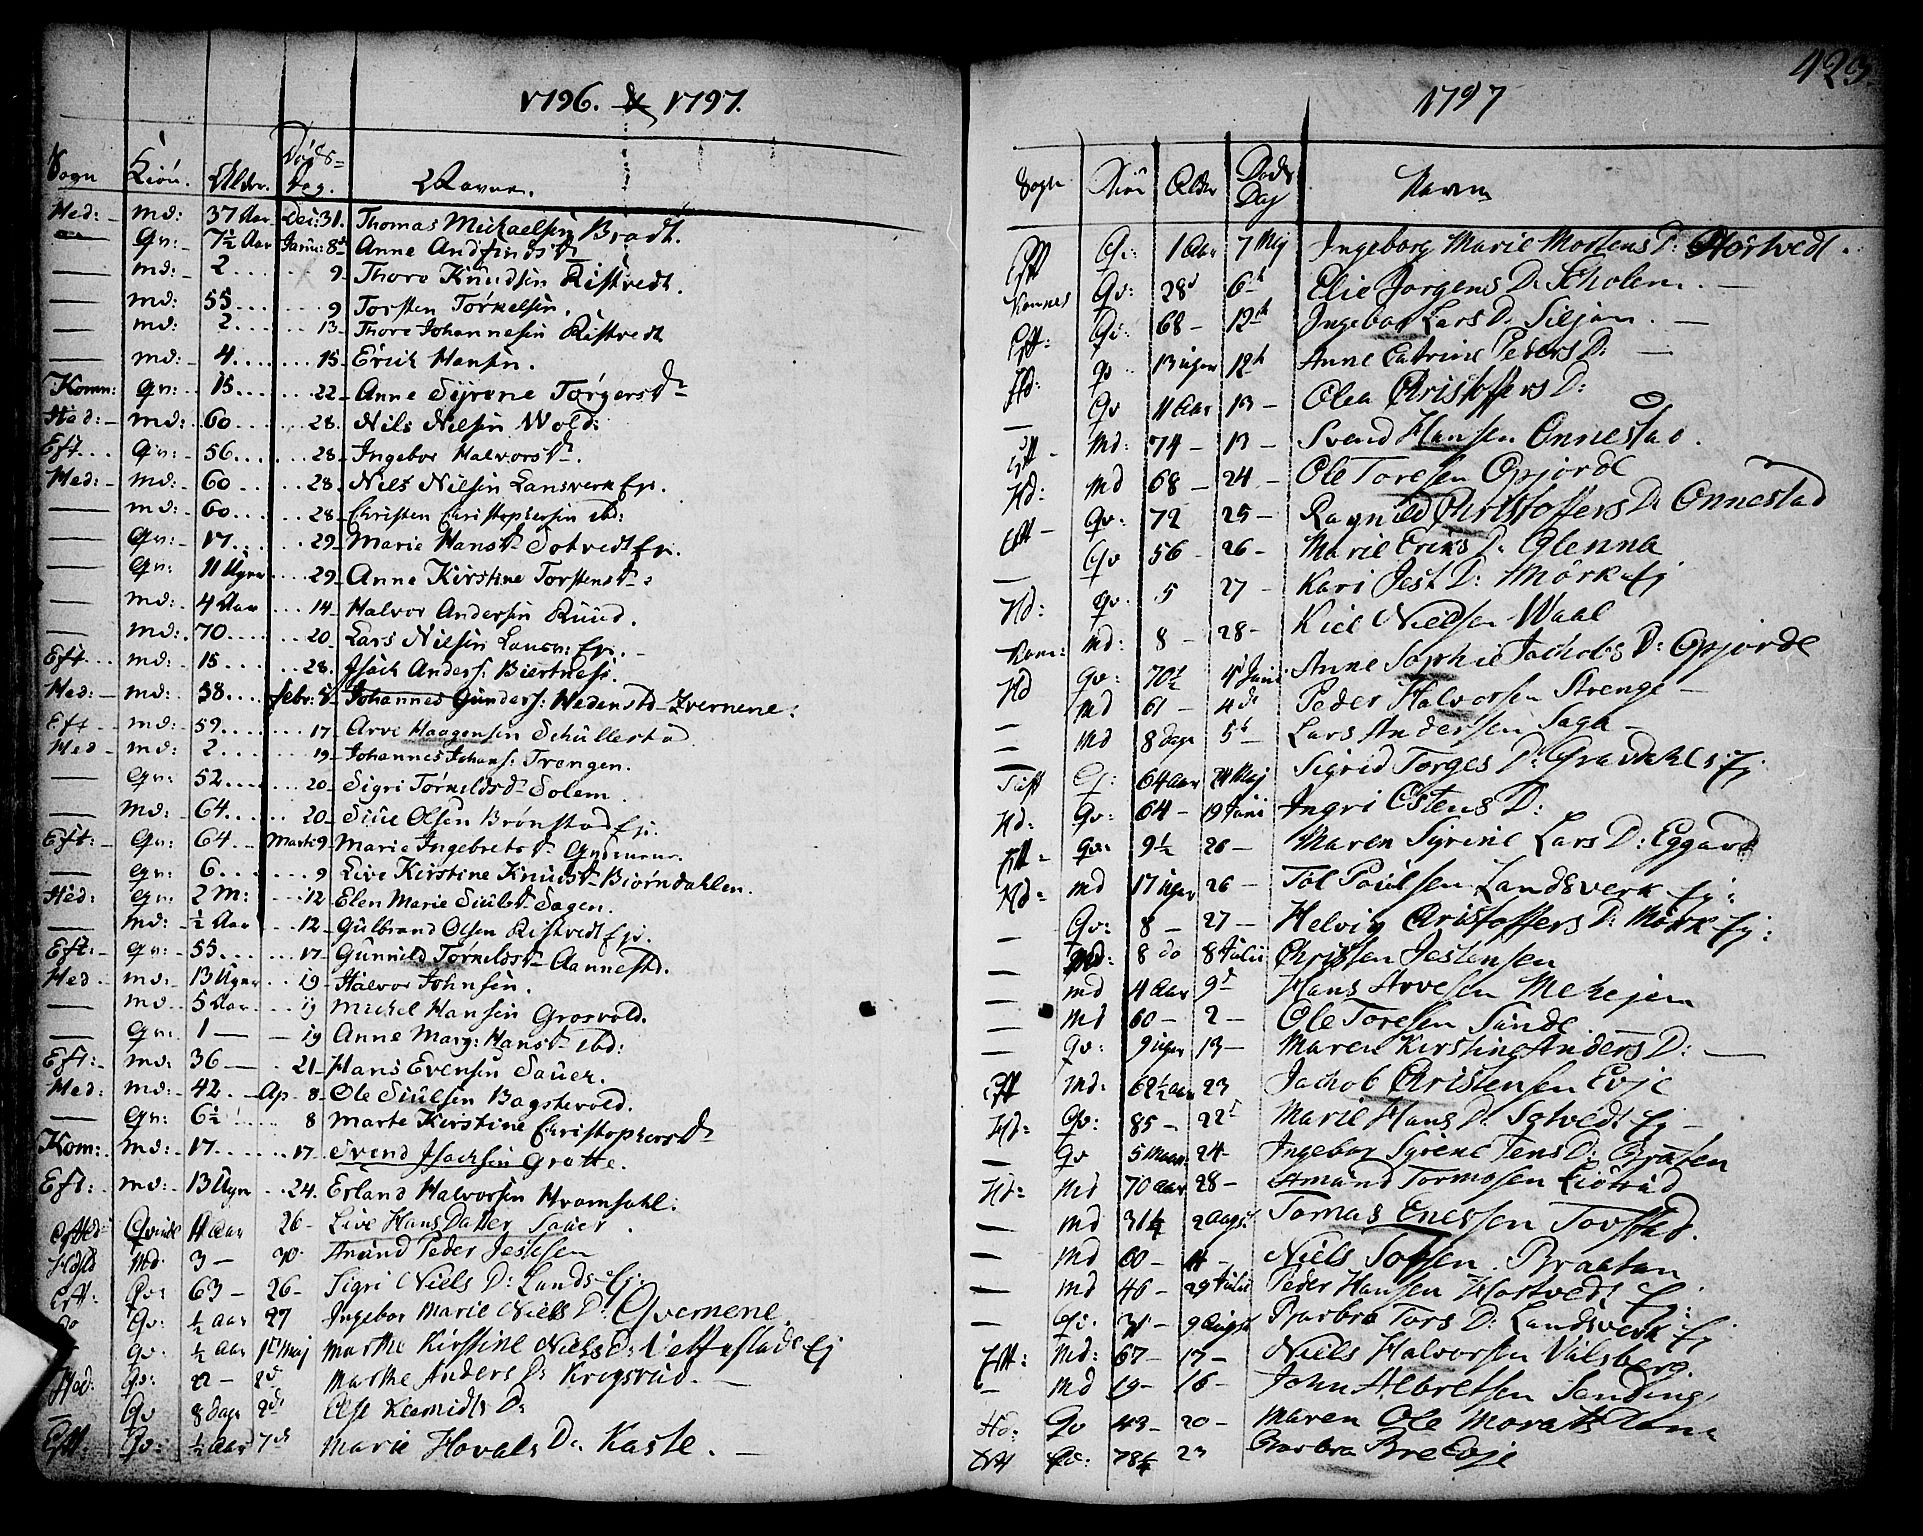 1796. & 1797.
Sogn Kiön. Alder. Døds-Dag. Navne.
Hed: md: 37 Aar Dec: 31. Thomas Michaelsen Bradt.
— Qv: 7½ Aar Janu: 8de Anne Andfindsd
— md: 2 9 Thore Knudsen Ristvedt.
— md: 55 9 Torsten Torkelsen.
— md: 2 13 Thore Johannesen Ristvedt
— md: 4 15 Erich Hansen.
Komn: qv: 15 22 Anne Syrene Torgersdr
Hed: md: 60 28. Nils Nilsen Wold:
Eft. Qv: 56 28 Ingebor Halvorsd.
Hed: md: 60 28. Nils Nilsen Lansverk Ej.
— md: 60 28 Christen Christophersen ibd:
— Qv: 17 29 Marie Hansd Sotvedt Ej.
— Qv: 11 Uger 29 Anne Kirstine Torstensd:
— md: 4 Aar 14 Halvor Andersen Ruud.
— md: 70 20 Lars Nilsen Lansv: Ej.
Eft md: 15 28. Isach Anders: Biertness.
Hed: md: 38 Febr: 5 Johannes Gunders: Hedenstd Zvernene:
Eft md: 59 17 Arve Haagensen Schullestad
Hed md: 2 19 Johannes Johans: Trengen.
— Qv: 52 20 Sigri Torkildsd Solem.
— md: 64 20 Siul Olsen Brønstad Ej.
Eft: Qv: 64 Marti 9 Marie Ingebretsd
— Qv: 6 9 Live Kirstine Knudsd Biørndahlen.
Hed: Qv: 2 M: 12 Elen Marie Siulsd Sagen.
— md: ½ Aar 12 Gulbrand Olsen Ristvedt Ej.
Eft: qv: 55 17 Gunnild Torkildsd Aannestd.
Hed md: 13 Uger 19 Halvor Johnsen.
— md 5 Aar 19 Michel Hansen Grosvold.
— Qv: 1 — 19 Anne Marg: Hansd ibd:
Eft: md: 36 — 21 Hans Evensen Sauer.
Hed: md: 42 Ap 8 Ole Siulsen Bagstevold.
— Qv: 6½ 8 Marte Kirstine Christophersdr
Kom: md: 17 17 Svend Isachsen Grotte.
Eft: md: 13 Ugr 24. Erland Halvorsen Hvamsahl.
Qvinde 11 Aar 26 Live Hans Datter Sauer.
Md: 3 — 30 Amund Peder Jessen
Eft: Qv: 63 — 26 Sigri Niels D: Lands Ej:
do Qv: ½ aar 27 Ingebor Marie Niels D: Qvernene.
qv: ½ aar 1st Maj Marthe Kirstine Niels D: Vettestad Ej
Hed: Qv: 22 — 2d Marthe Anders D: Krogsrud. —
— Qv 8 dage 2d Else D:
Eft: Qv: ½ Aar 7d Marie Hovals D: Kaste. —
423
1797
Sogn Kiön Alder Døds Dag Navn
Eft Qv: 1 Aar 7 Mij Ingeborg Marie Mortens D: Hostvedt.
Komnes Qv: 28 6t Elie Jorgens D: Scholem. —
Eft: Qv: 68 — 12th Ingebor Lars D: Siljan. —
Hd: qv 13 uger 12th Anne Catrine Peders D: —
— Qv 11 Aar 13 — Olea Christoffers D:
Eft Md: 74 — 13 — Svend Hansen Onnestad.
Hd: Md 68 — 24 — Ole Toresen Opjorde
Eft — Qv: 72 25 — Ragnild Christoffers D: Onnestad
— Qv 56 — 26 — Marie Eriks D: Glenna
Hd: qv. 5 27 — Kari Jest D: Mörk Ej
Kom: md: 8 — 28 — Kiel Nielsen Waal
Hd qv: 70½ 4 Juni Anne Sophie Jachobs D: Opjorde
— Md 61 — 4de Peder Halvorsen Strenge —
— Md 8 dage 5t Lars Anderssen Saga —
Qv: 64 Aar 24 Maj Sigrid Torges D: Gravdahls Ej
Hd: Qv: 64 — 19 Juni Ingri Ostens D:
Eft — qv: 9½ 26 — Maren Syrine Lars D: Eggard
Hd: md 17 uger 26 — Tol Poulsen Landsverk Ej:
— Qv: 8 — 27 — Helvig Cristoffers D: Mörk Ej:
— Md: 8 do 8 Julii Christen Jestensen
— md 4 Aar 9d Hans Arvesen Mehejen
— Md 60 — 2 — Ole Toresen Sunde
— Qv: 9 uger 13 — Maren Kirstine Anders D: —
Eft Md: 62½ aar 23 Jachob Christensen Evje
Hd: Qv: 85 — 22d Marie Hans D: Sotvedt Ej —
— Qv 5 Maan: 24 — Ingebor Syrene Jens D: Bråten
Hd: Md 70 aar 28 — Amund Tormosen Liöterud
— Md 31½ 2 Augst Tomas Enessen Torstad.
— Md 60 — 11 — Niels Tossen. Braatan
— Md 46 — 29 Julii Peder Hansen Hostvedt Ej:
— Qv. 31 — 9 Augst Barbra Tors D: Landsverk Ej
Eft: Md: 67 — 17 — Niels Halvorsen Valsberg.
— Md 19 — 16 — John Albretsen Sanding
Hd: Qv 43 — 20 — Maren Ole
Eft Qv: 78½ 23 Barbra Bre Evje